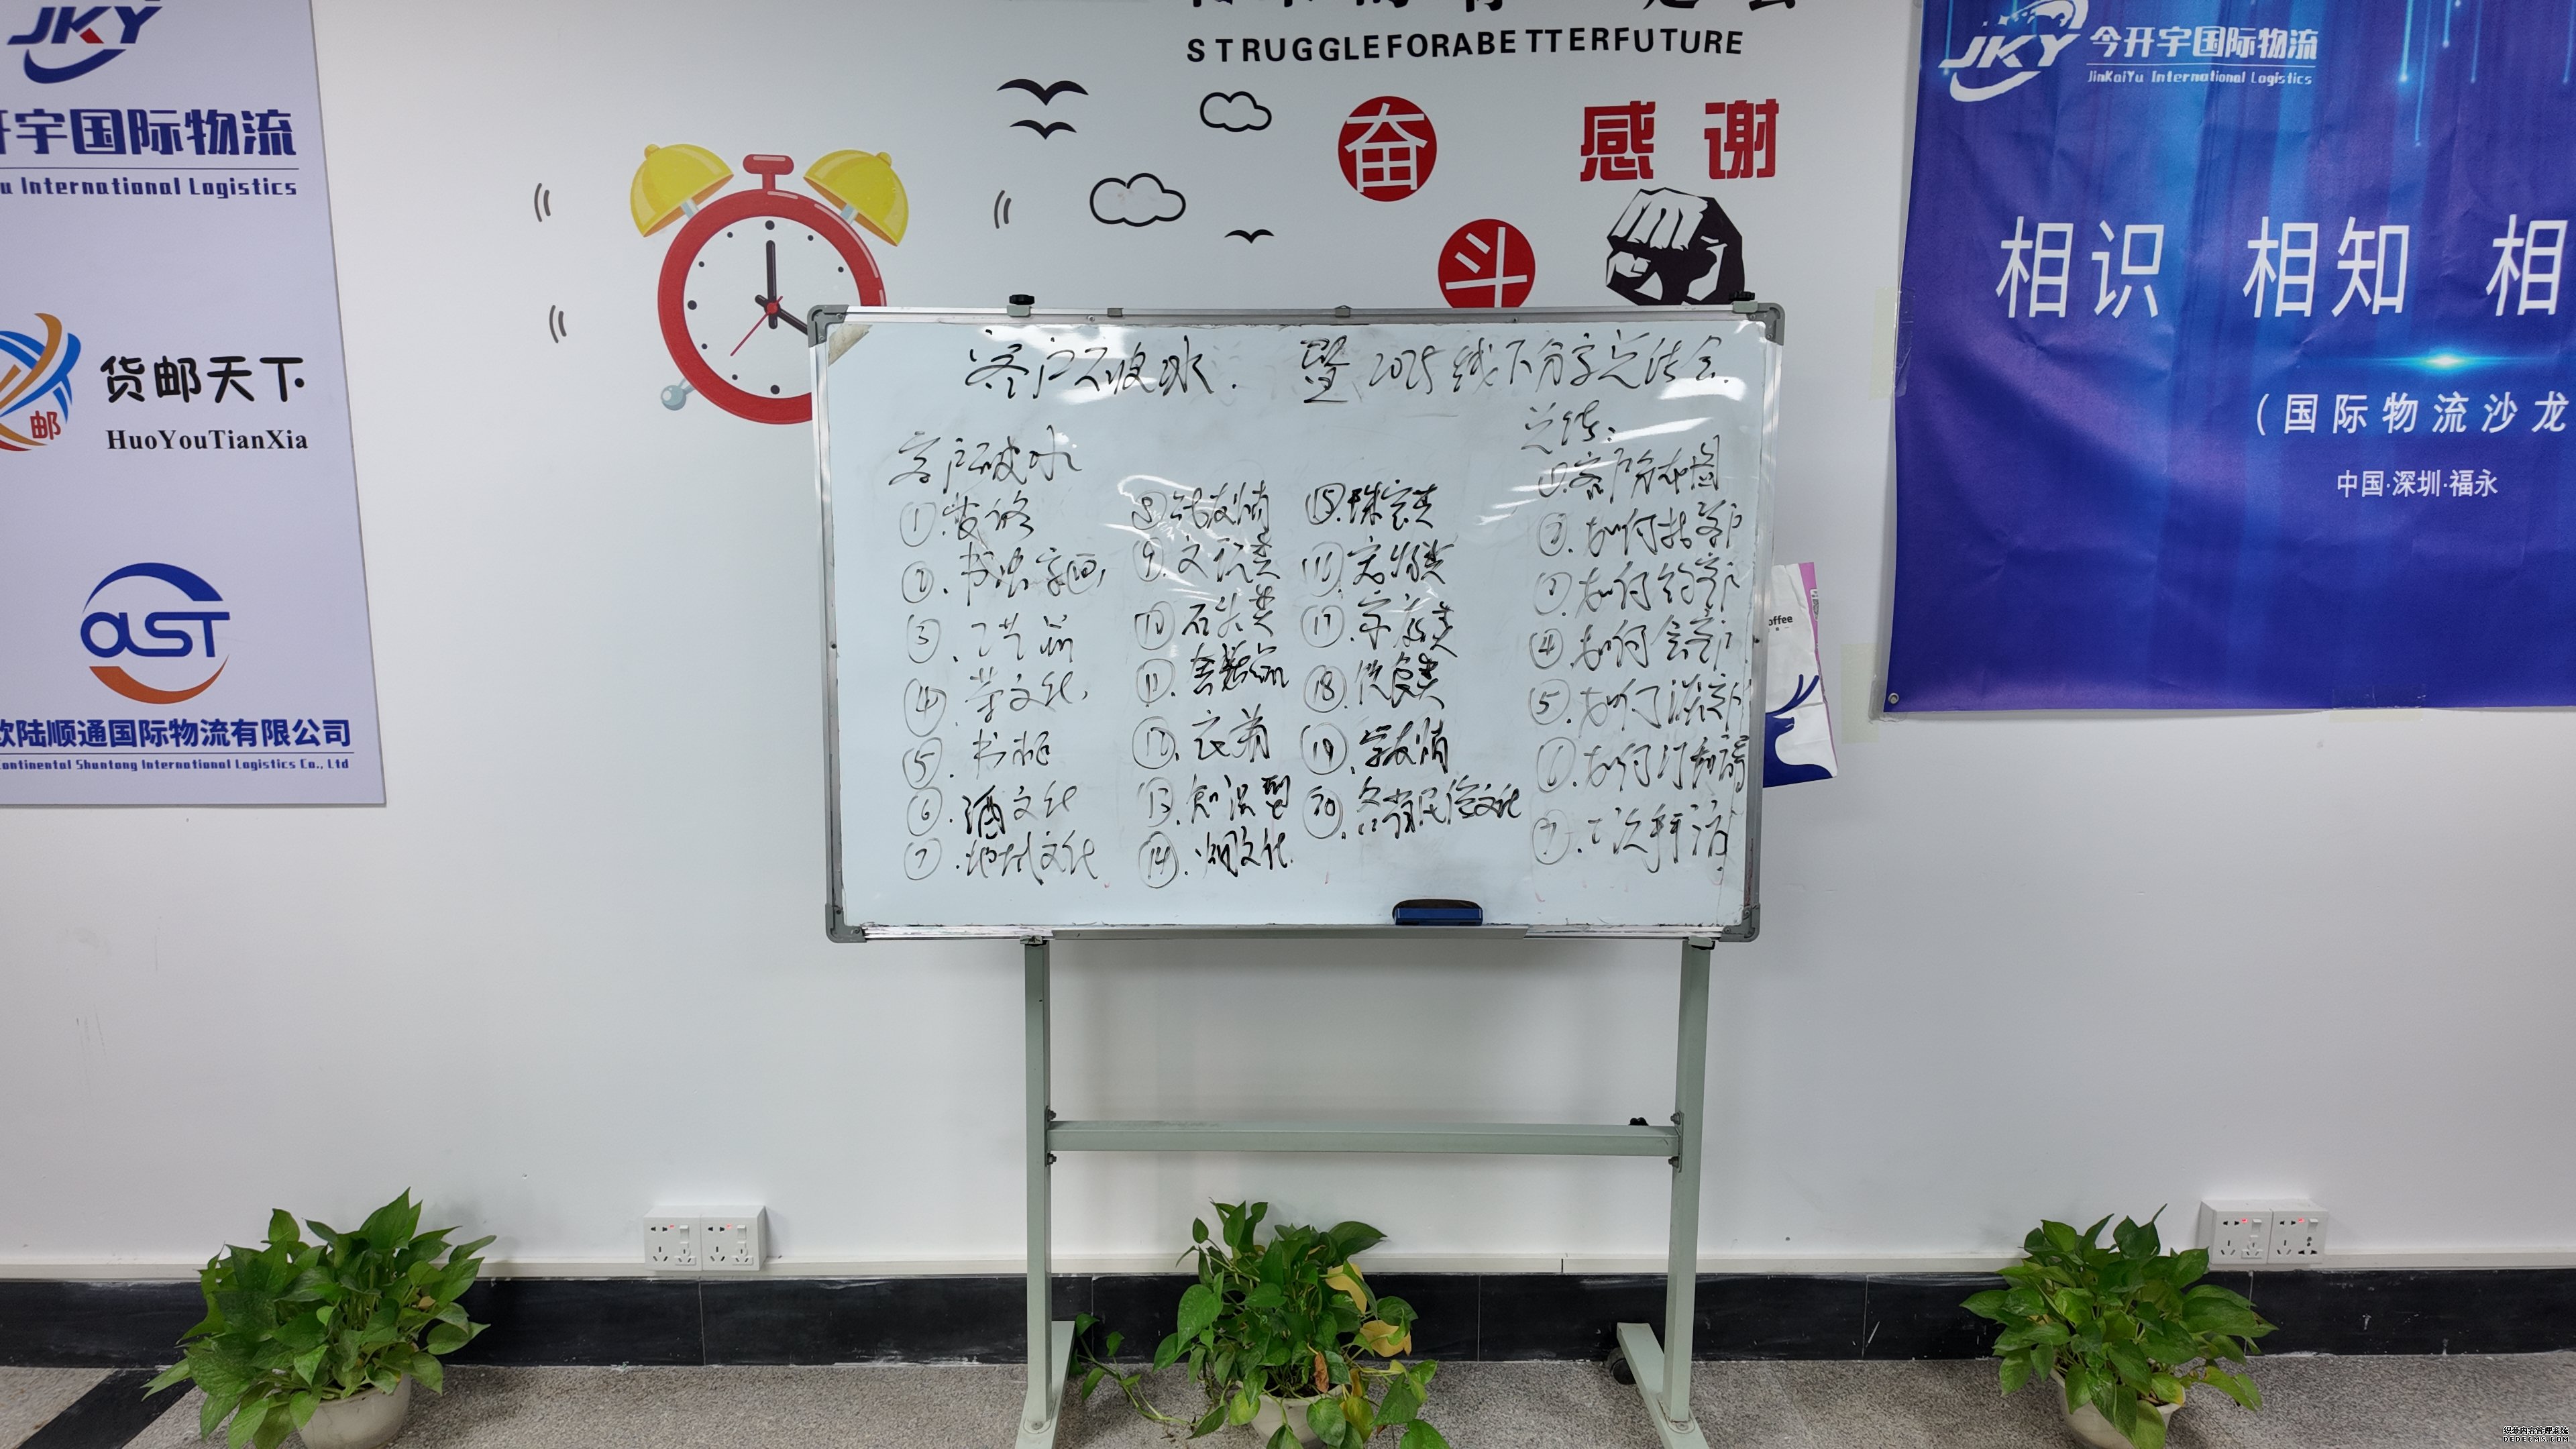 JKY
开宇国际物流
u International Logistics
货邮天下
邮
HuoYouTianXia
AST
欧陆顺通国际物流有限公司
Continental Shuntong International Logistics Co., Ltd
STRUGGLEFORABETTERFUTURE
奋
斗
感谢
客户破冰. 暨2025线下分享总结会.
客户破冰
①.
②.书法字画,
③.
④.茶文化,
⑤.书柜
⑥.酒文化
⑦.地域文化
⑧战友情
⑨.文玩类
⑩.石头类
⑪.
⑫.衣着
⑬.知识型
⑭.烟文化.
⑮.珠宝类
⑯.宠物类
⑰.家庭类
⑱.饮食类
⑲.学友情
⑳.各省民俗文化
总结:
①.客户分布图
②.如何找客户
③.如何约客户
④.如何会客户
⑤.如何
⑥.如何
⑦.二次拜访
offee
JKY
今开宇国际物流
JinKaiYu International Logistics
相识 相知 相
(国际物流沙龙
中国·深圳·福永
织梦内容管理系统
DEDECMS.COM